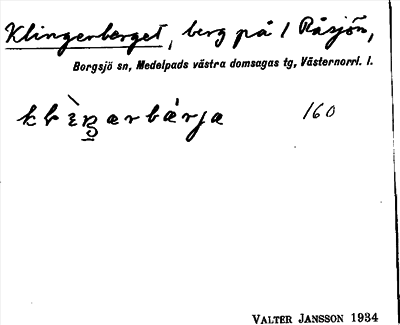 Klingerberget, berg på 1 Råsjön,
Borgsjö sn, Medelpads västra domsagas tg, Västernorrl. l.
160
VALTER JANSSON 1934